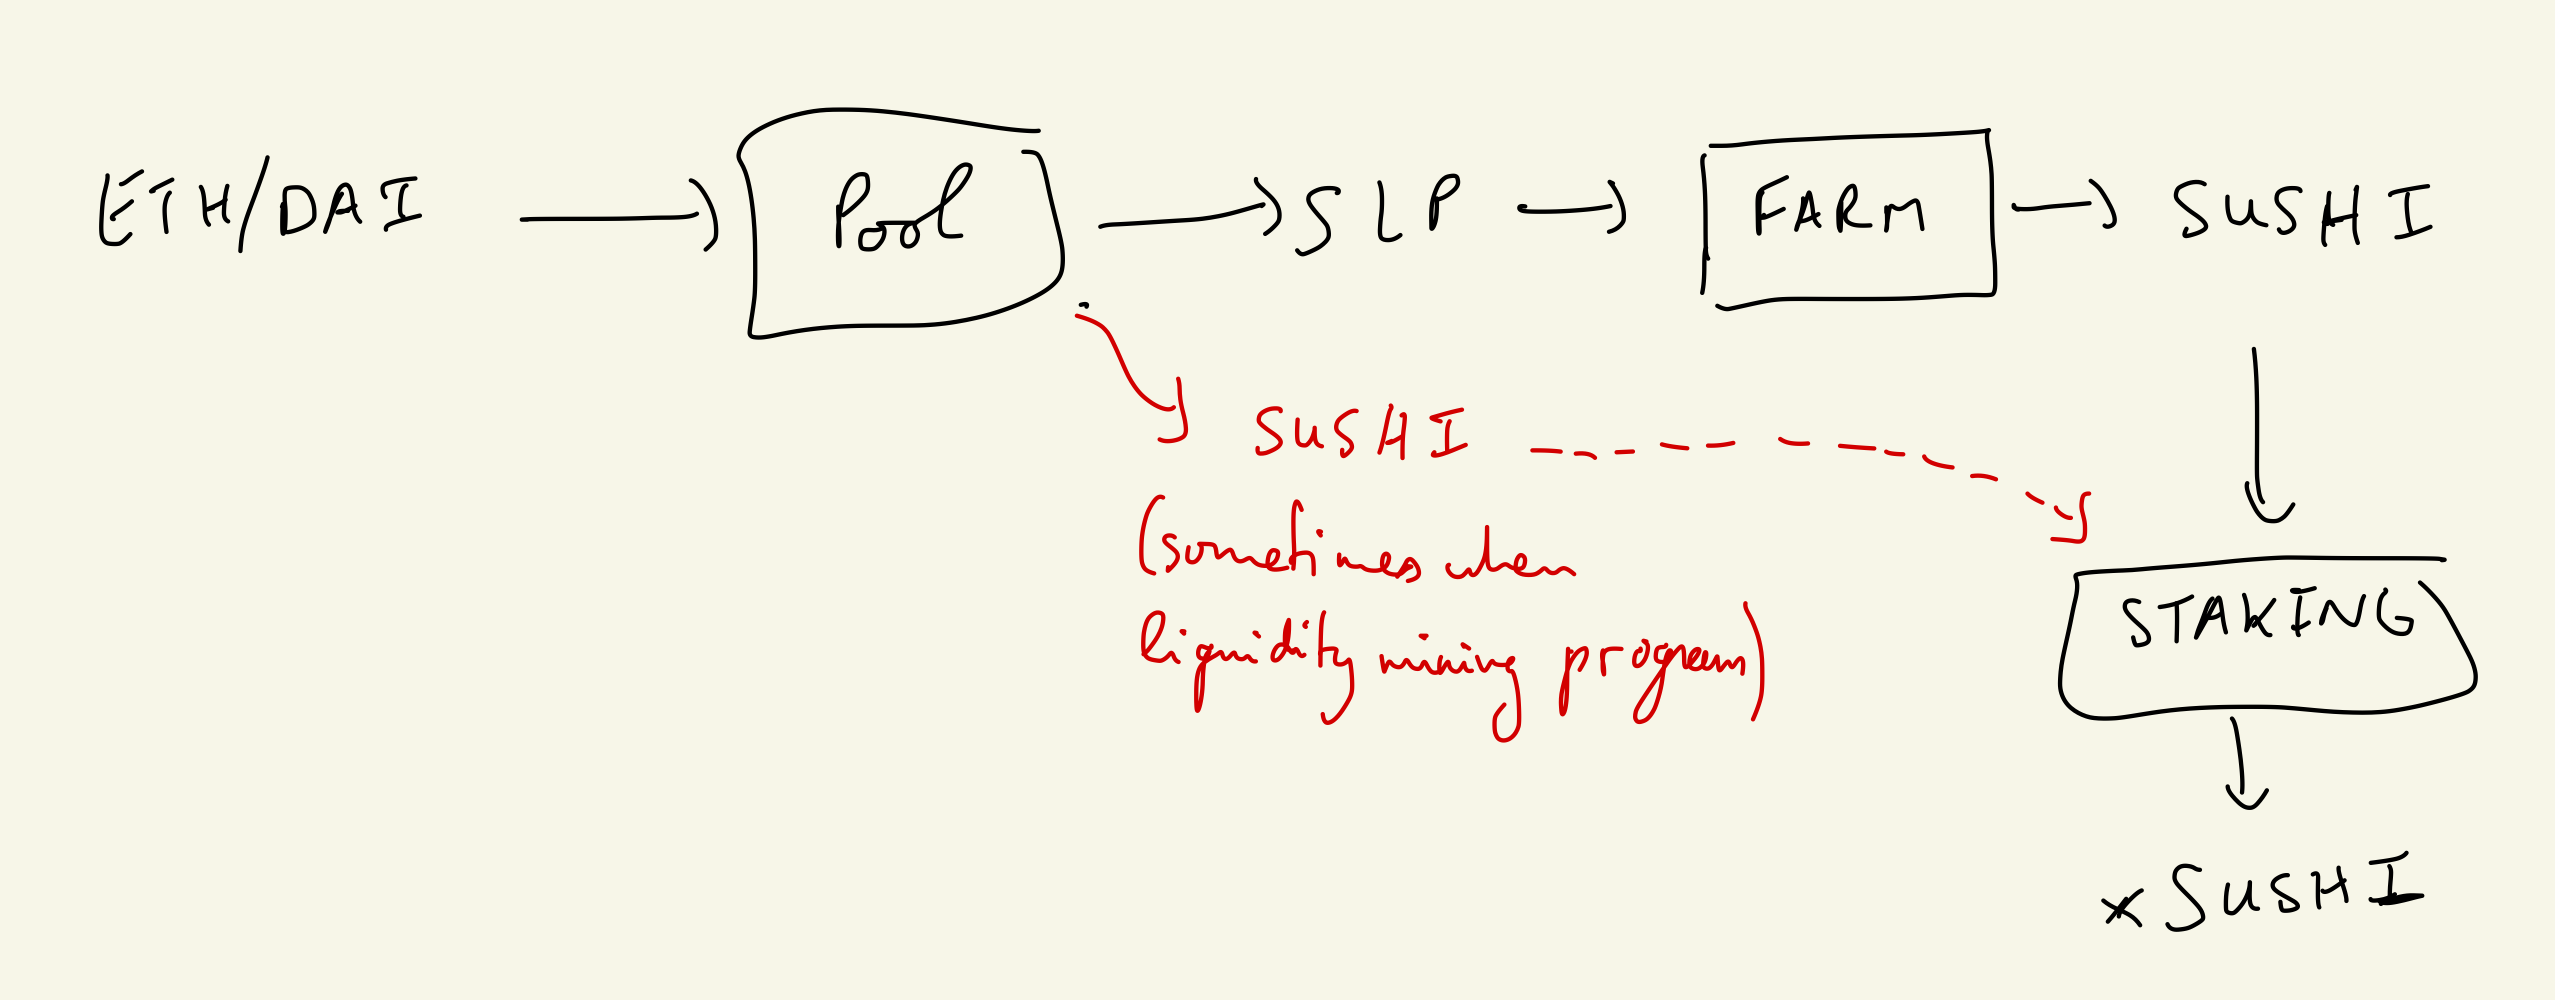 ETH/DAI
Pool
SLP
FARM
SUSHI
SUSHI
(sometimes when
liquidity mining program)
STAKING
xSUSHI